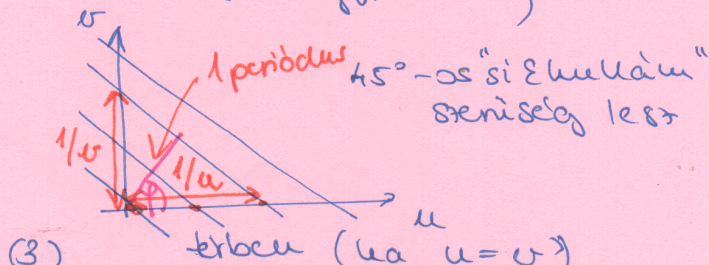 v
1 periódus
45°-os "síkhullám"
szerűség lesz
1/v
1/u
u
(3) térben (ha u=v)